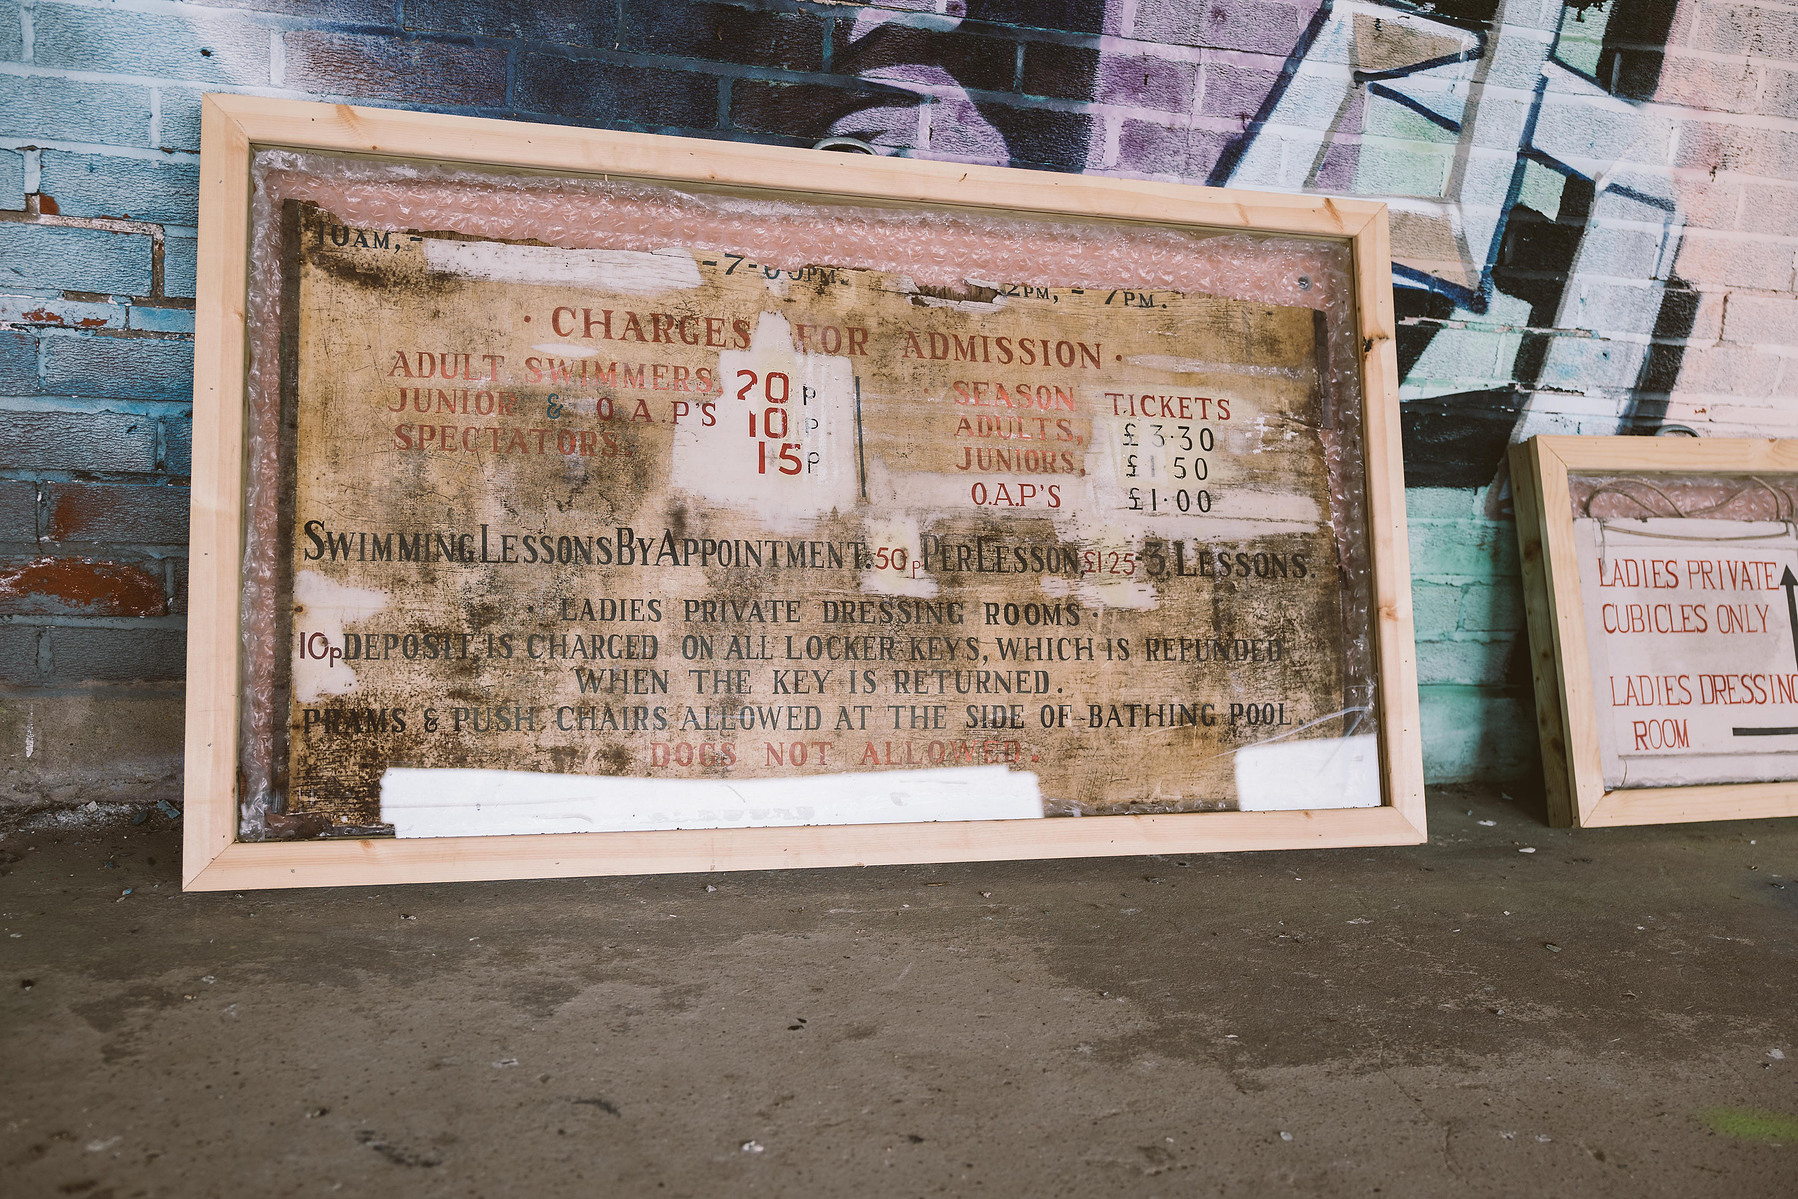 10AM, -
-7-00PM.
2PM, - 7PM.
· CHARGES FOR ADMISSION ·
ADULT SWIMMERS, 20p
JUNIOR & O.A.P'S 10p
SPECTATORS. 15p
SEASON TICKETS
ADULTS, £3·30
JUNIORS, £1·50
O.A.P'S £1·00
SWIMMING LESSONS BY APPOINTMENT. 50p PER LESSON, £1·25-3, LESSONS.
· LADIES PRIVATE DRESSING ROOMS ·
10p DEPOSIT IS CHARGED ON ALL LOCKER KEYS, WHICH IS REFUNDED
WHEN THE KEY IS RETURNED.
PRAMS & PUSH CHAIRS ALLOWED AT THE SIDE OF BATHING POOL.
DOGS NOT ALLOWED.
LADIES PRIVATE
CUBICLES ONLY
LADIES DRESSING
ROOM